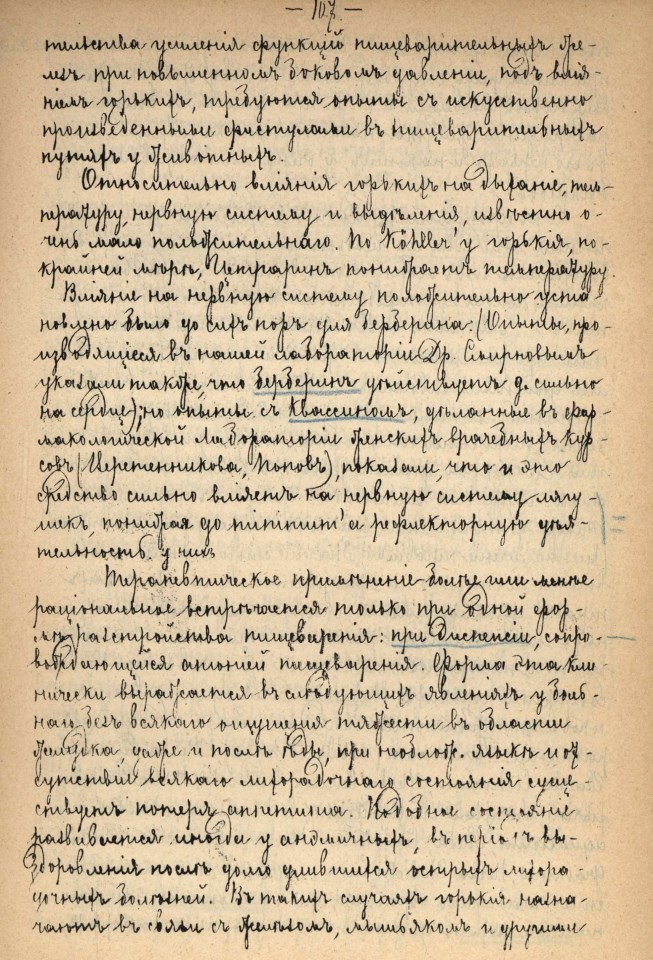 — 107. —
тельства усиленія функцій пищеварительныхъ же-
лезъ при повышенномъ боковомъ давленіи, подъ влія-
ніемъ горькихъ, требуются опыты съ искусственно
произведенными фистулами въ пищеварительныхъ
путяхъ у животныхъ.
Относительно вліянія горькихъ на дыханіе, тем-
пературу, нервную систему и выдѣленія, извѣстно о-
чень мало положительнаго. По Köhller'у горькія, по-
крайней мѣрѣ, Цетраринъ понижаетъ температуру.
Вліяніе на нервную систему положительно уста-
новлено было до сихъ поръ для берберина: (Опыты, про-
изводящіеся въ нашей лабораторіи Др. Смирновымъ
указали также, что берберинъ дѣйствуетъ д. сильно
на сердце); но опыты съ Квассиномъ, дѣланные въ фар-
макологической лабораторіи женскихъ врачебныхъ кур-
совъ (Черешенникова, Поповъ), показали, что и это
средство сильно вліяетъ на нервную систему лягу-
шекъ, понижая до minimum'а рефлекторную дѣя-
тельность у нихъ
Терапевтическое примѣненіе болѣе или менѣе
раціональное встрѣчается только при одной фор-
мѣ разстройства пищеваренія: при диспепсіи, сопро-
вождающейся атоніей пищеваренія. Форма эта кли-
нически выражается въ слѣдующихъ явленіяхъ у боль-
наго безъ всякаго ощущенія тяжести въ области
желудка, даже и послѣ ѣды, при необлож. языкѣ и от-
сутствіи всякаго лихорадочнаго состоянія суще-
ствуетъ потеря аппетита. Подобное состояніе
развивается иногда у анемичныхъ, въ періодъ вы-
здоровленія послѣ долго длившихся острыхъ лихора-
дочныхъ болѣзней. Въ такихъ случаяхъ горькія назна-
чаютъ въ связи съ желѣзомъ, мышьякомъ и другими